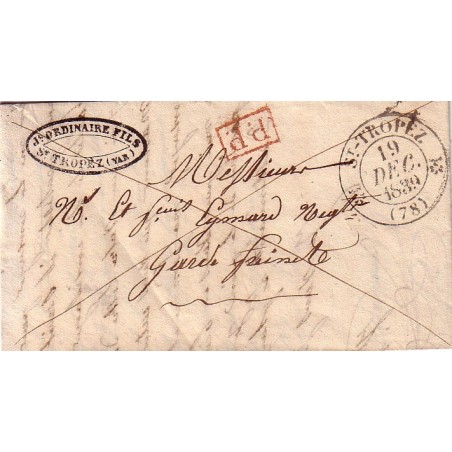 Js ORDINAIRE FILS
St TROPEZ (VAR)
P.P.
ST-TROPEZ
19
DEC.
1839
(78)
Messieurs
Ns. Et Eymard Negts
Garde freinet